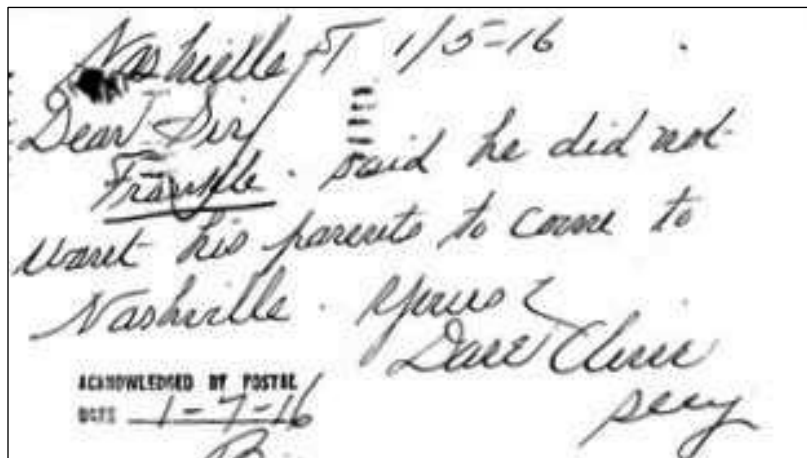 Nashville T 1/5-16
Dear Sir
Frankle. said he did not
want his parents to come to
Nashville. Yours
Dave
Secy
ACKNOWLEDGED BY POSTAL
DATE 1-7-16